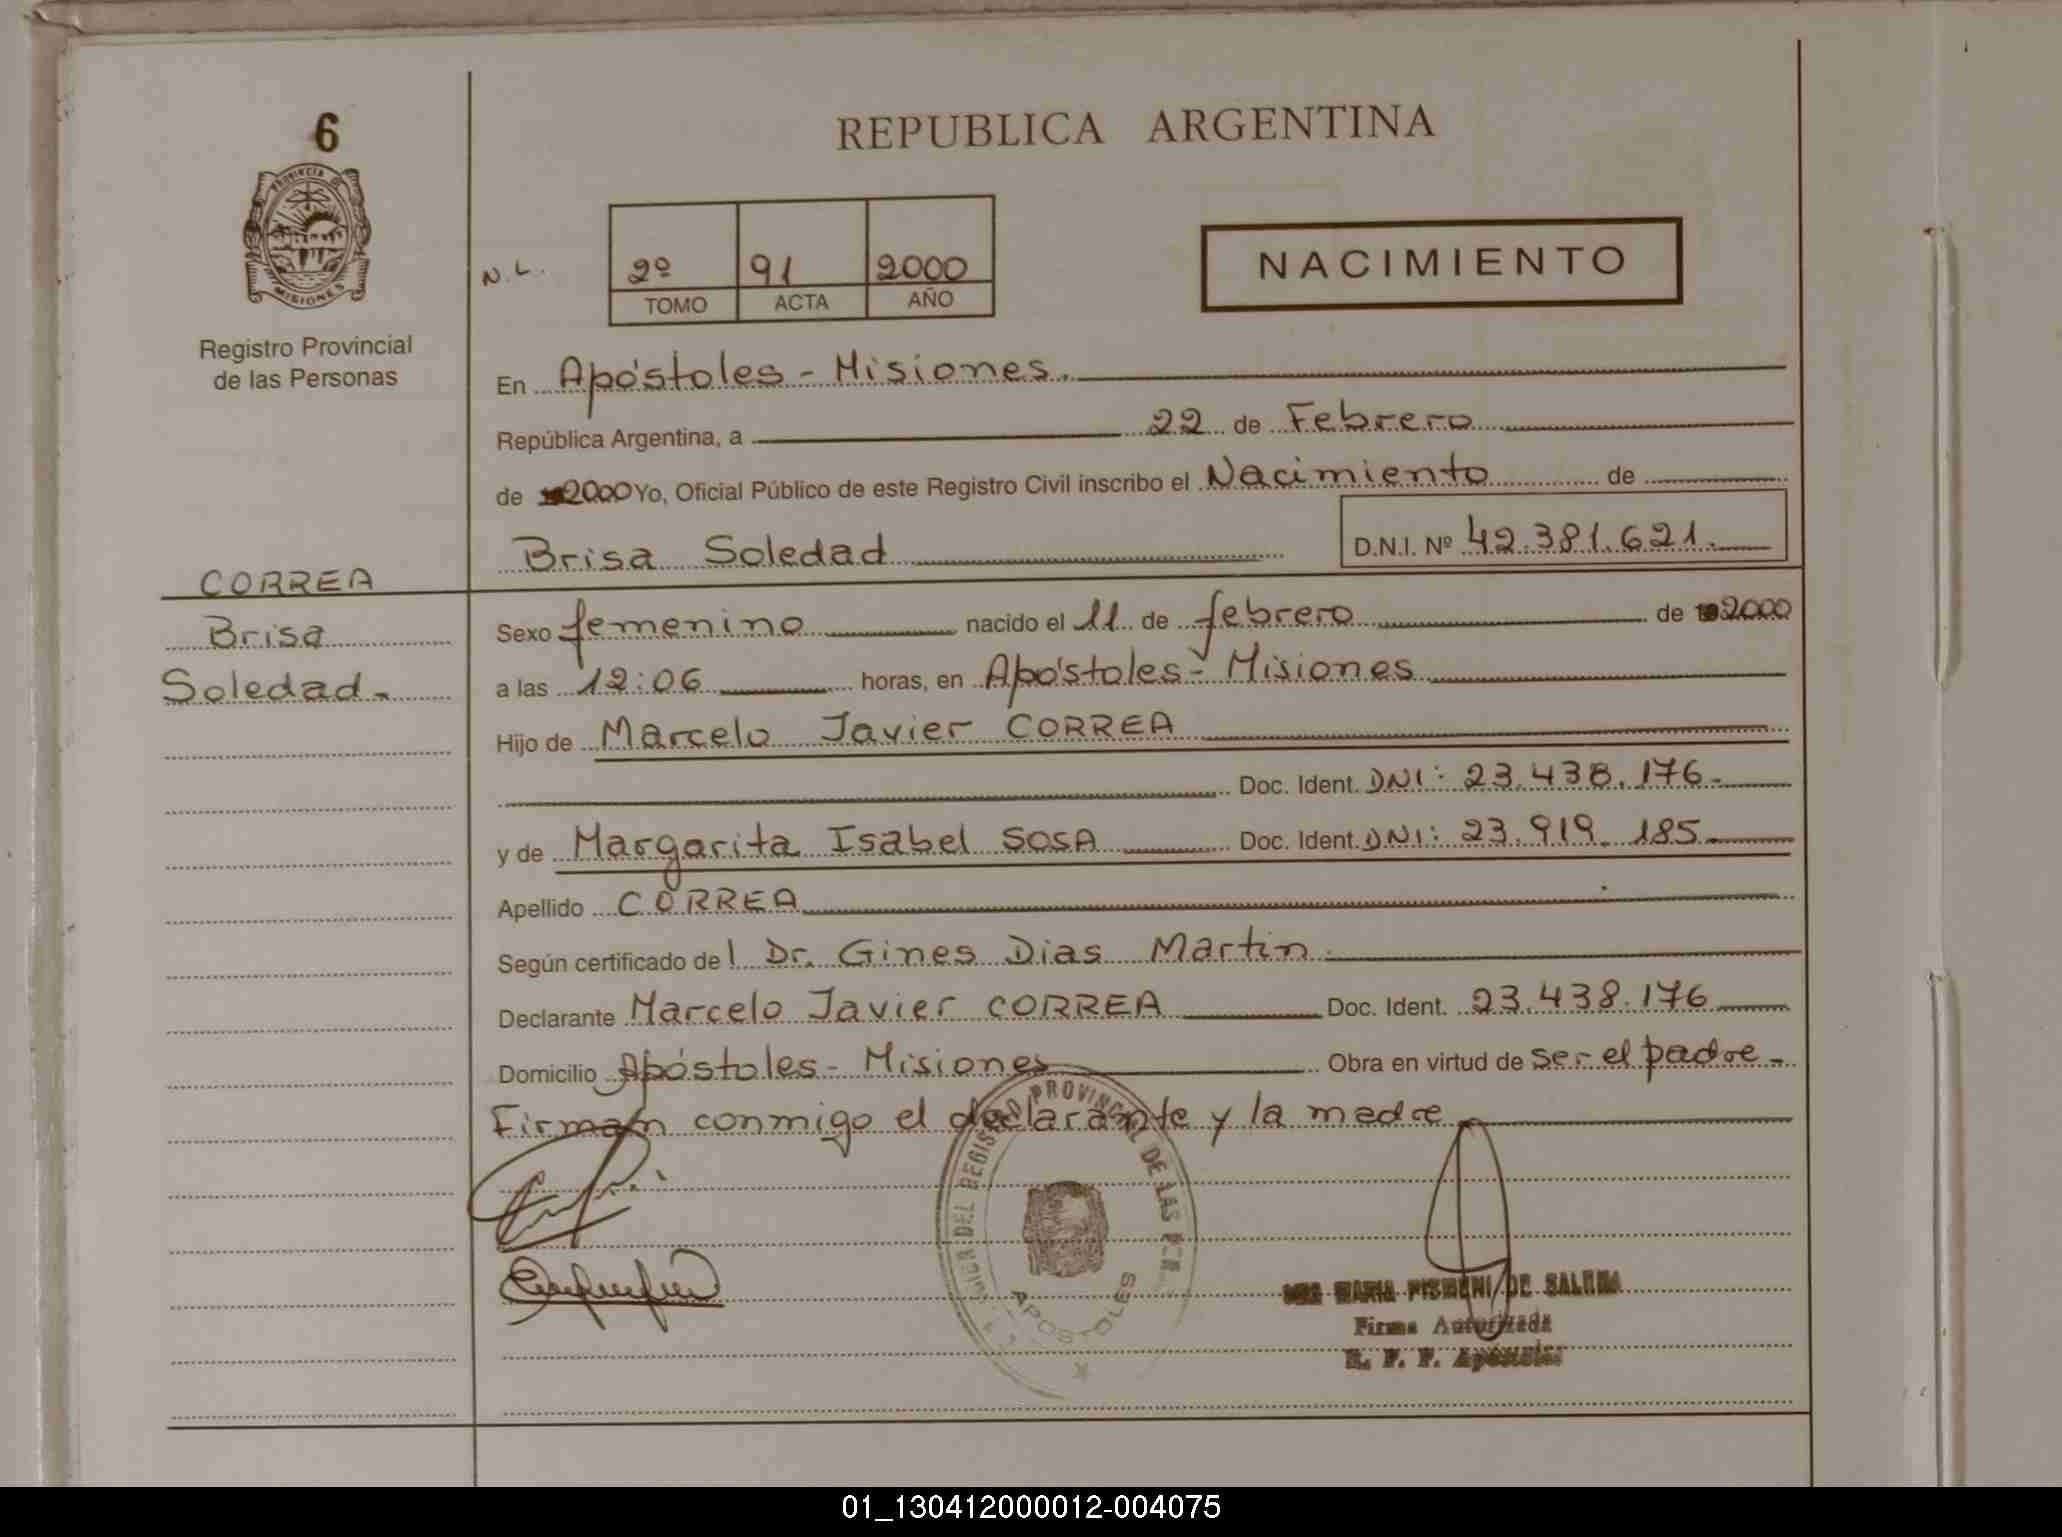 6
PROVINCIA DE
MISIONES
Registro Provincial
de las Personas
CORREA
Brisa
Soledad.-
REPUBLICA ARGENTINA
N.L.
2º 91 2000
TOMO ACTA AÑO
NACIMIENTO
En Apóstoles - Misiones.
República Argentina, a 22 de Febrero
de 2000 Yo, Oficial Público de este Registro Civil inscribo el Nacimiento de
Brisa Soledad D.N.I. Nº 42.381.621.
Sexo femenino nacido el 11 de febrero de 2000
a las 12:06 horas, en Apóstoles - Misiones
Hijo de Marcelo Javier CORREA
Doc. Ident. DNI: 23.438.176.-
y de Margarita Isabel SOSA Doc. Ident. DNI: 23.919.185.-
Apellido CORREA
Según certificado del Dr. Gines Dias Martin.
Declarante Marcelo Javier CORREA Doc. Ident. 23.438.176
Domicilio Apóstoles - Misiones Obra en virtud de ser el padre.-
Firman conmigo el declarante y la madre
DEL REGISTRO PROVINCIAL DE LAS
APOSTOLES
MARIA DE
Firma Autorizada
R. P. P. Apóstoles
01_130412000012-004075